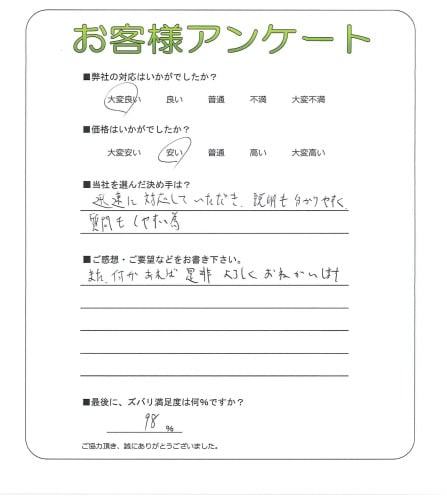 お客様アンケート
■弊社の対応はいかがでしたか？
大変良い 良い 普通 不満 大変不満
■価格はいかがでしたか？
大変安い 安い 普通 高い 大変高い
■当社を選んだ決め手は？
迅速に対応していただき、説明も分かりやすく
質問もしやすい為
■ご感想・ご要望などをお書き下さい。
また、何かあれば是非よろしくおねがいします
■最後に、ズバリ満足度は何％ですか？
98 ％
ご協力頂き、誠にありがとうございました。